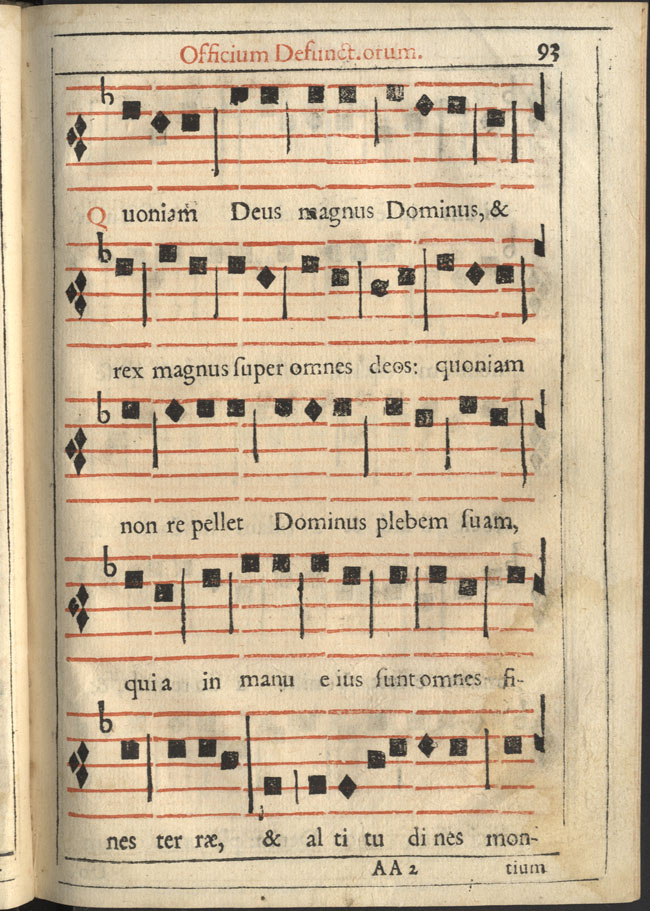 Officium Defunctorum. 93
Quoniam Deus magnus Dominus, &
rex magnus ſuper omnes deos: quoniam
non re pellet Dominus plebem ſuam,
quia in manu e ius ſunt omnes fi-
nes ter ræ, & al ti tu di nes mon-
AA 2 tium